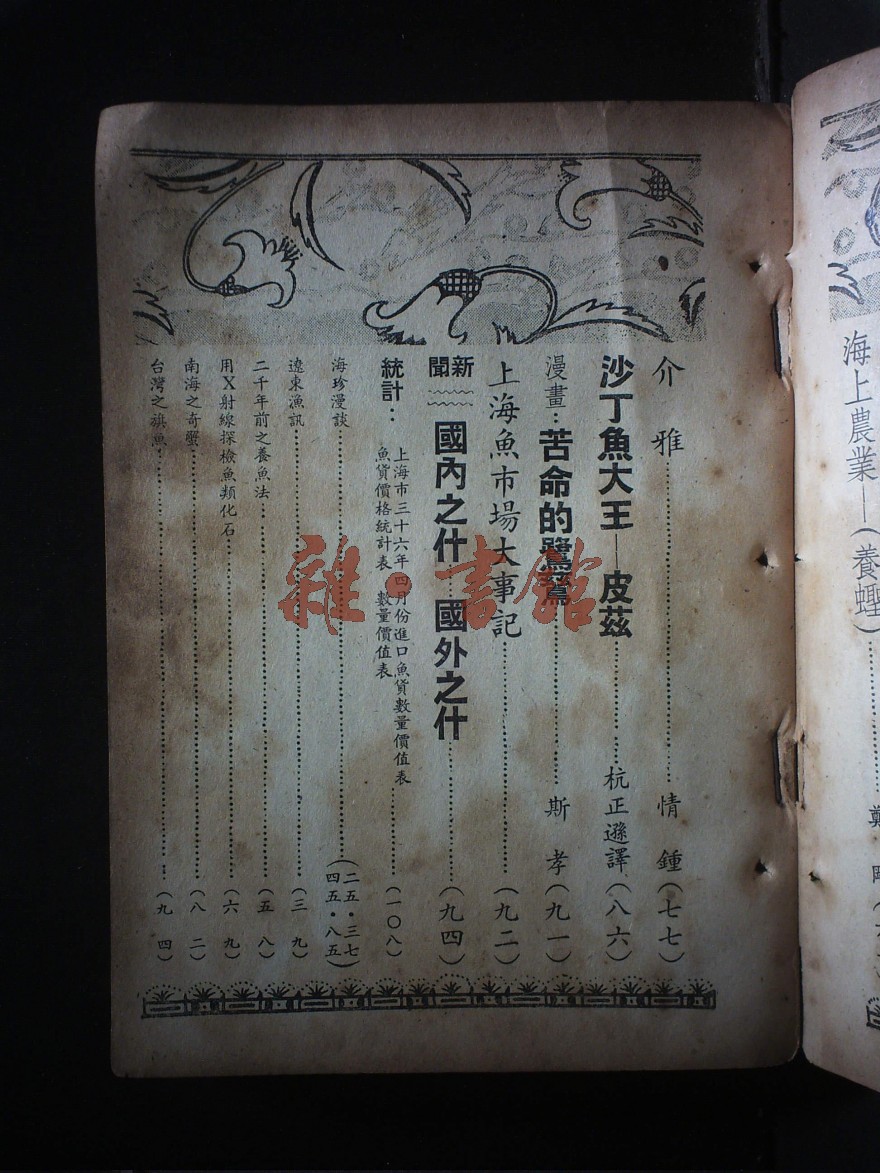 海上農業—(養蟶)
介雅……情鍾(七七)
沙丁魚大王—皮茲……杭正遜譯(八六)
漫畫：苦命的鷺鷥……斯孝(九一)
上海魚市場大事記……(九二)
新聞 國內之什……國外之什……(九四)
統計：上海市三十六年四月份進口魚貨數量價值表……(一〇八)
魚貨價格統計表 數量價值表
海珍漫談……(二五・三七四五・八五)
遼東漁訊……(三九)
二千年前之養魚法……(五八)
用X射線探檢魚類化石……(六九)
南海之奇蟹……(八二)
台灣之旗魚……(九四)
雜・書館